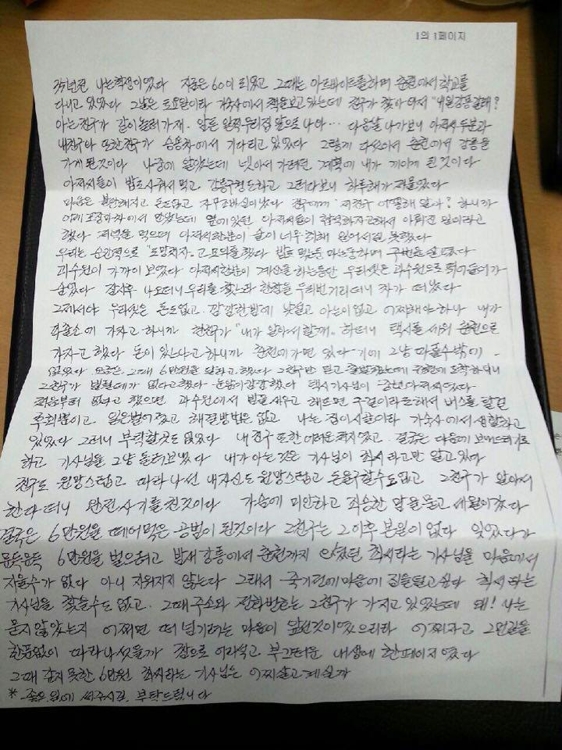 1의 1페이지
35년전 나는 학생이었다 지금은 60이 되었고 그때는 아르바이트를하며 춘천에서 학교를
다니고 있었다 그날은 토요일이라 기숙사에서 책을보고 있는데 친구가 찾아와서 "내일 강릉갈래?
아는친구가 같이놀러가재. 알른 앞쪽 우리집앞으로 나와 ... 다음날 나가보니 아저씨 두분과
내친구와 또한친구가 승용차에서 기다리고 있었다 그렇게 다섯이서 춘천에서 강릉을
가게 된것이다 나중에 알았는데 넷이서 가려던 계획에 내가 끼이게 된것이다
아저씨들이 밥도사줘서 먹고 강릉구경도하고 그러다보니 하루해가 저물었다
마음은 불안해지고 돈도없고 친구에게 "어떻게 된거야? 하니까
옆에있던 아저씨들이
했다 저녁을 먹으며 아저씨한분이 술이 너무취해 일어서질 못했다
우리는 순간적으로 "도망치자. 고 모의를했다 밥도 먹는둥 마는둥하며 주변을 살폈다
과수원이 가까이 보였다 아저씨한분이 계산을 하는동안 우리셋은 과수원으로 뛰어들어가
숨었다 잠시후 나오더니 우리를 찾느라 한참을 두리번 거리더니 차가 떠났다
그제서야 우리셋은 돈도없고. 깜깜한밤에 낯설고 아는이없고 어찌해야하나 내가
파출소에 가자고 하니까 한친구가 "내가 알아서 할께. 하더니 택시를 세워 춘천으로
가자고 했다 돈이 있냐고 하니까 춘천에가면 있다 기에 그냥 따를수밖에 -
없었다 요금은 그때 6만원을 달라고 했다 그친구만 믿고 출발했는데 춘천에 도착하니까
그친구가 방법이 없다고했다 눈앞이 캄캄했다 택시기사님이
처음부터 없다고 했으면 과수원에서 밤을 새우고 해뜨면 구걸이라도해서 버스를 탈걸
후회뿐이고. 일은벌어졌고 해결방법은 없고 나는 집이시골이라 기숙사에서 생활하고
있었다 그러니 부탁할것도 없었다 내친구 또한 어려운처지였고. 결국은 다음에 보내드리기로
하고 기사님을 그냥 돌려보냈다 내가 아는것은 기사님이 최씨라고만 알고있다
친구도 원망스럽고 따라나선 내자신도 원망스럽고 돈을구할수도없고 그친구가 알아서
한다더니 완전사기를 친것이다 가슴에 미안하고 죄송한 맘을품고 세월이갔다
결국은 6만원을 떼어먹은 공범이 된것이다 그친구는 그이후 본일이 없다 잊었다가
문득문득 6만원을 벌으려고 밤새 강릉에서 춘천까지 오셨던 최씨라는 기사님을 마음에서
지울수가 없다 아니 지워지지 않는다 그래서 죽기전에 마음에 짐을덜고 싶다 최씨라는
기사님을 찾을수도 없고. 그때 주소와 전화번호는 그친구가 가지고 있었는데 왜! 나는
묻지않았는지 어쩌면 떠넘기려는 마음이 앞선것이었으리라 어찌하자고, 그먼길을
한푼없이 따라나섰을까 참으로 어리석고 부끄러운 내생에 한페이지였다
그때 갚지못한 6만원 최씨라는 기사님은 어찌살고계실까
* 좋은일에 써주시길 부탁드립니다